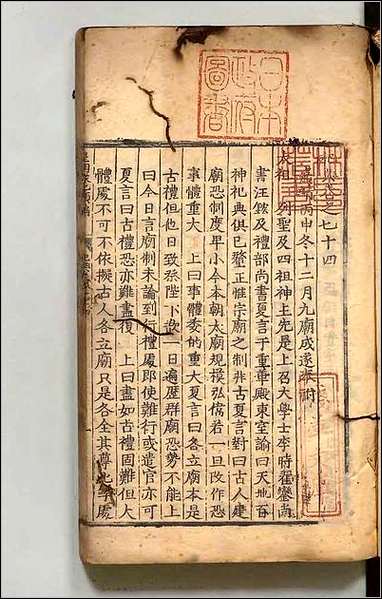 日本政府圖書
之七十四
丙申冬十二月九廟成遂奉祔
太祖 列聖及四祖神主先是上召大學士李時翟鑾尚
書汪鋐及禮部尚書夏言于重華殿東室諭曰天地百
神祀典俱已釐正惟宗廟之制非古夏言對曰古人建
廟恐制度卑小今本朝太廟規摸弘儒若一旦改作恐
事體重大 上曰事體委的重大夏言曰各立廟本是
古禮但他日致祭陛下一日遍歷群廟恐勢不能上
曰今日言廟制未論到行禮處即使難行或遣官亦可
夏言曰古禮恐亦難盡復 上曰盡如古禮固難但大
體處不可不依擬古人各立廟只是各全其尊此等處